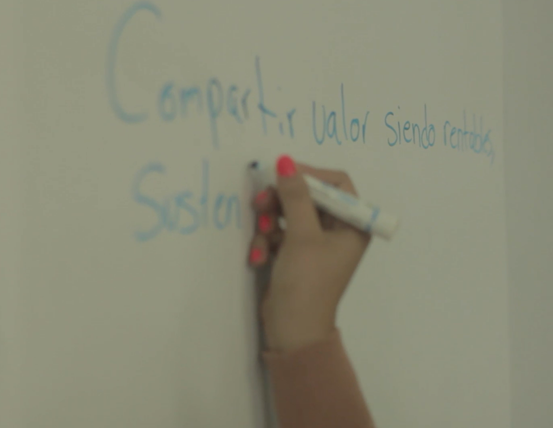 Compartir valor siendo rentables,
Susten